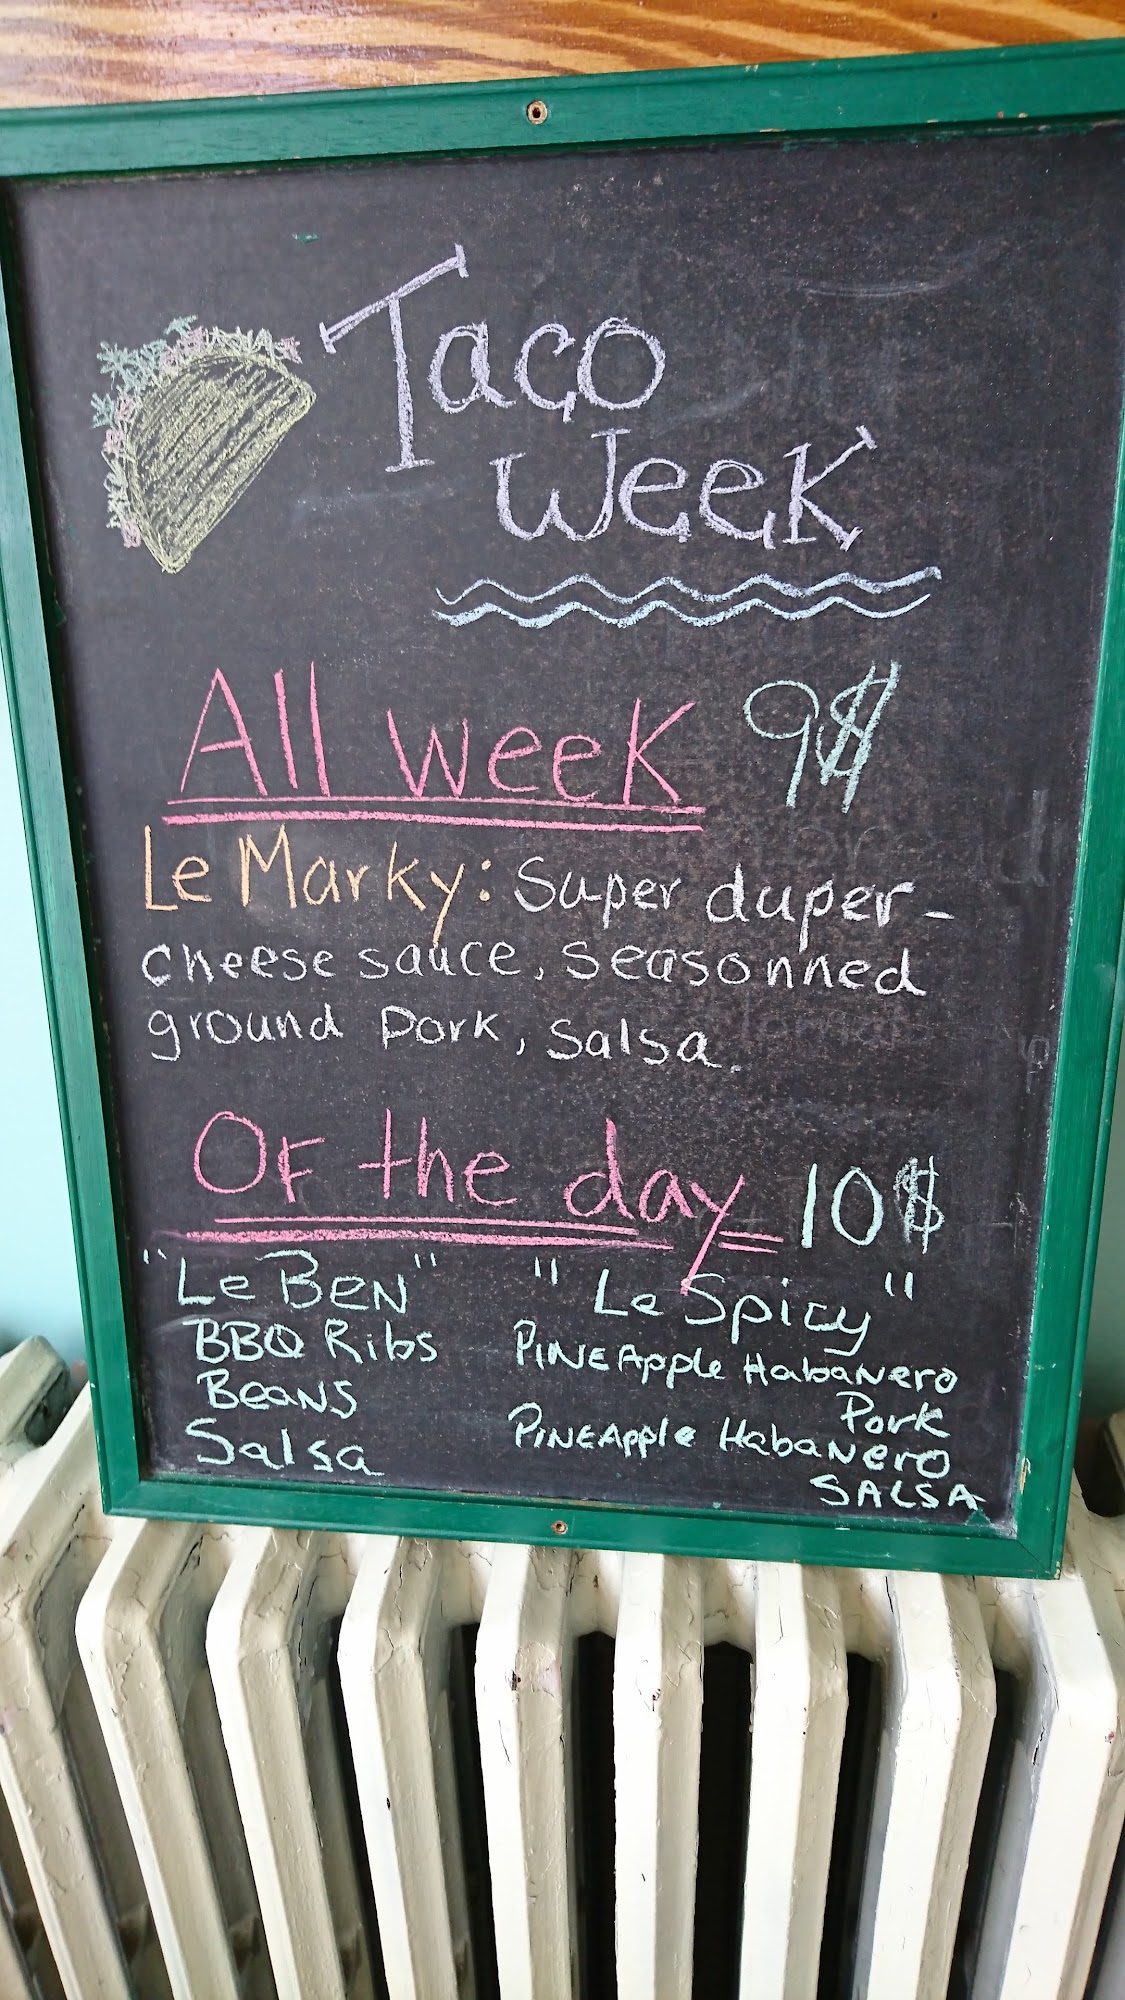 Taco
Week
All week 9$
Le Marky: Super duper-
cheese sauce, seasonned
ground pork, salsa.
Of the day 10$
"Le BEN" "Le Spicy"
BBQ Ribs PINEApple HabaNero
BeaNS Pork
Salsa PINEApple HabaNero
SALSA